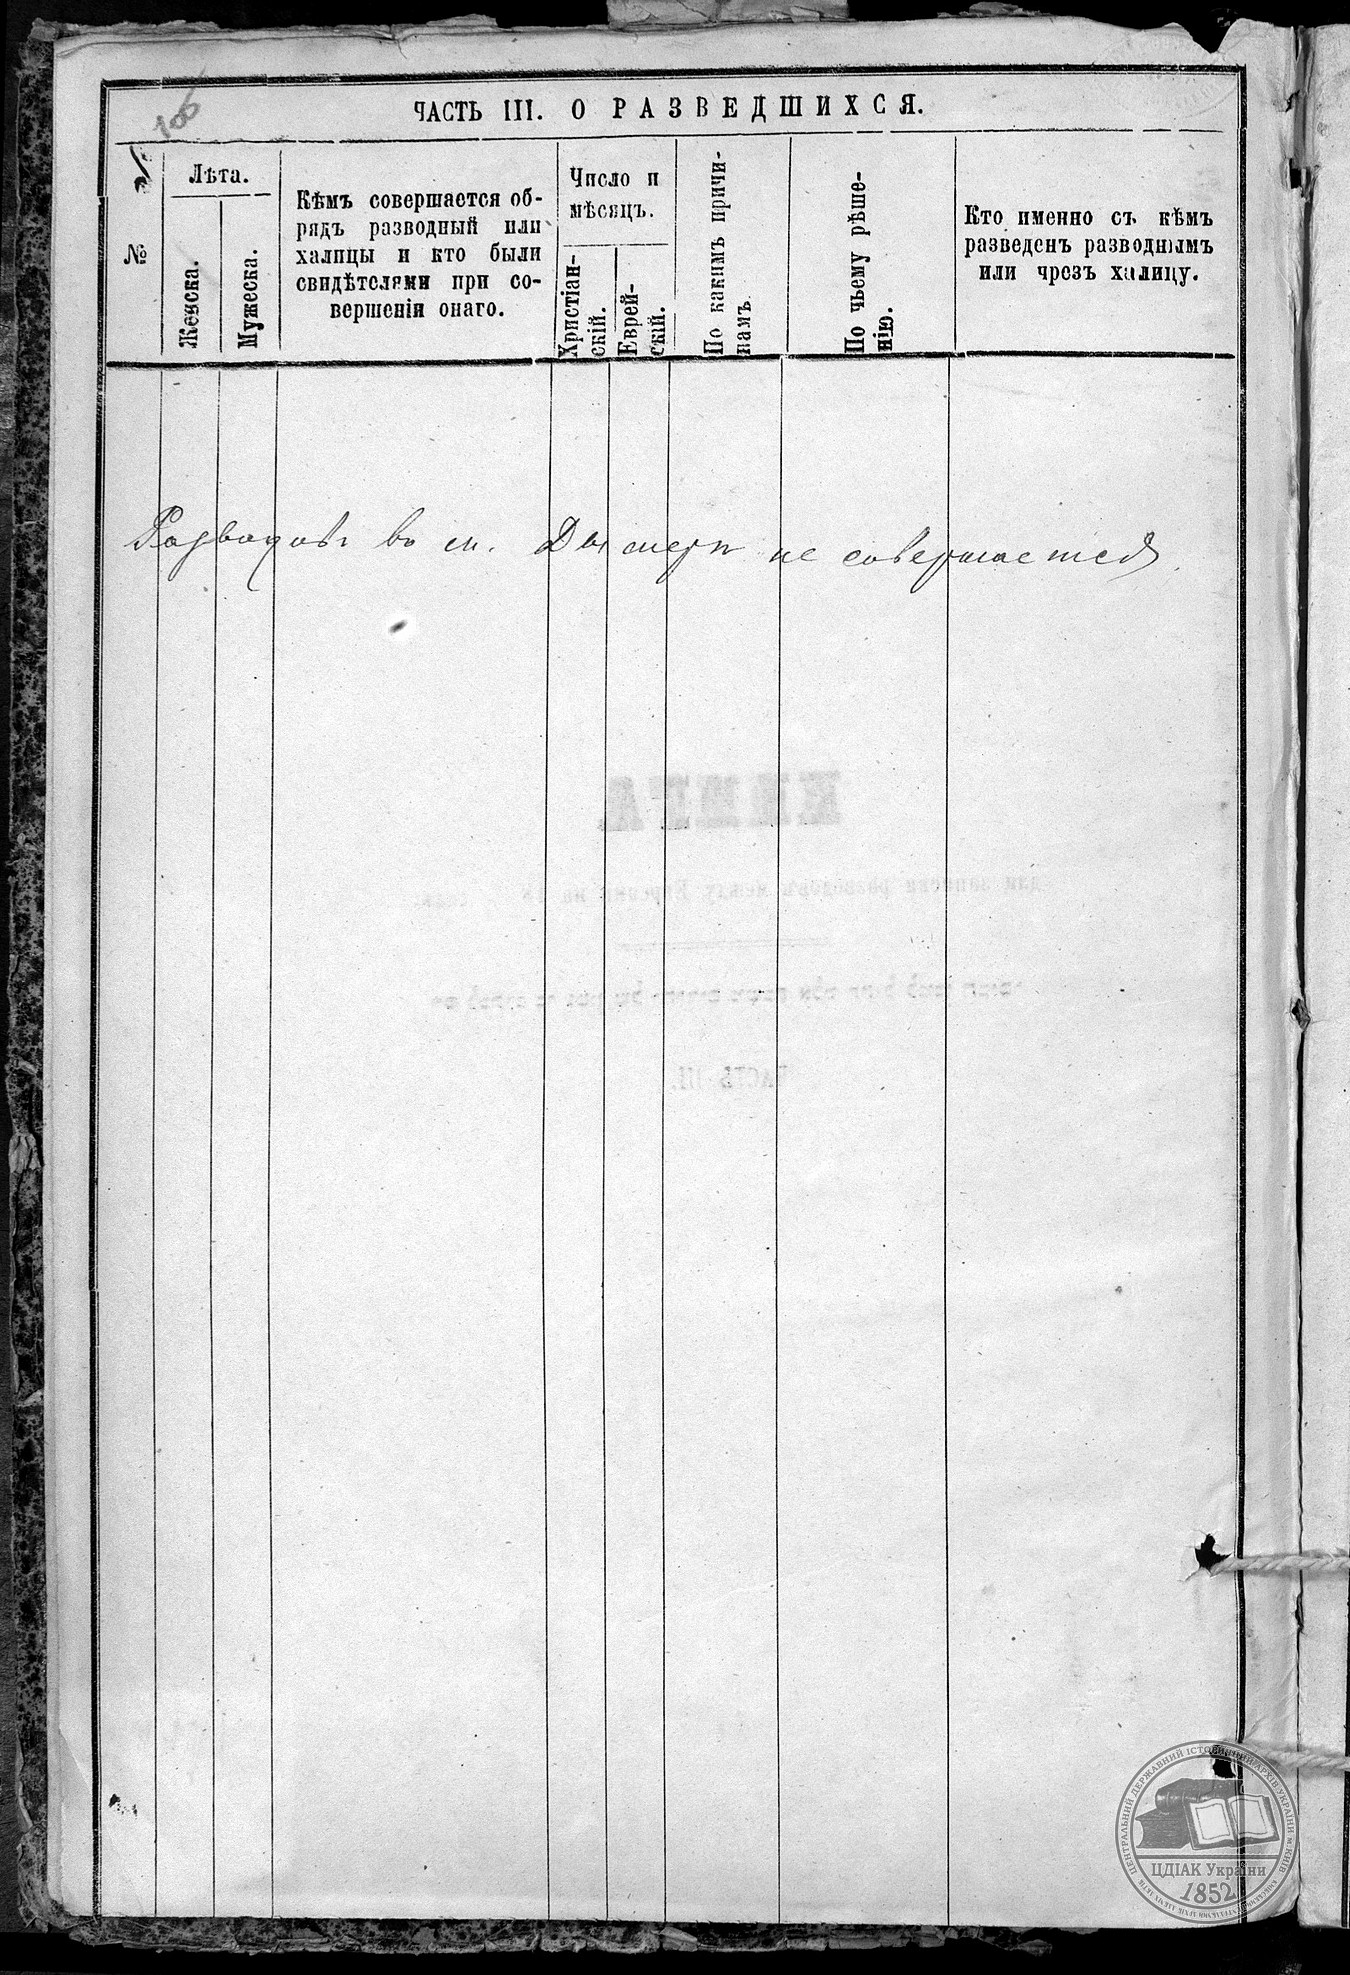 106
ЧАСТЬ III. О РАЗВЕДШИХСЯ.
№
Лѣта.
Женска.
Мужеска.
Кѣмъ совершается об-
рядъ разводный или
халицы и кто были
свидѣтелями при со-
вершеніи онаго.
Число и
мѣсяцъ.
Христіан-
скій.
Еврей-
скій.
По какимъ причи-
намъ
По чьему рѣше-
нію.
Кто именно съ кѣмъ
разведенъ разводнымъ
или чрезъ халицу.
Разводовъ въ м. Дымеръ не совершается
КНИГА
для записки разводовъ между Евреями на 18
ЧАСТЬ III.
ЦЕНТРАЛЬНИЙ ДЕРЖАВНИЙ ІСТОРИЧНИЙ АРХІВ УКРАЇНИ м. КИЇВ
ЦДІАК України
1852